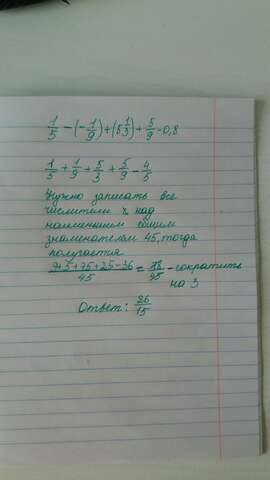 1/5 - (-1/9) + (5 1/3) + 5/9 - 0,8
1/5 + 1/9 + 5/3 + 5/9 - 4/5
Нужно записать все
числители над
наименьшем общим
знаменателем 45, тогда
получается
9+5+75+25-36/45 = 78/45 - сократить
на 3
Ответ: 26/15